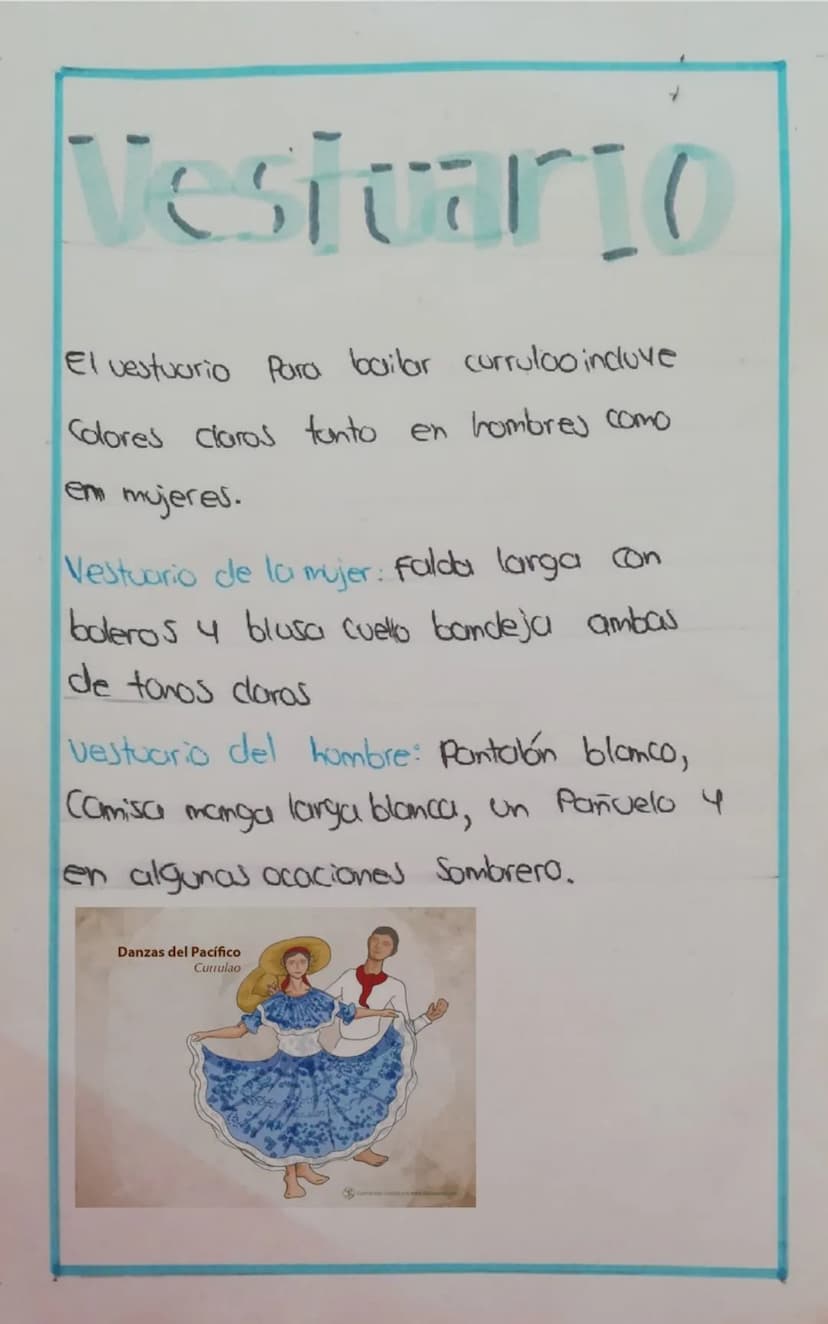 Vestuario
El vestuario para bailar currulao incluye
colores claros tanto en hombres como
em mujeres.
Vestuario de la mujer: Falda larga con
boleros y blusa cuello bandeja ambas
de tonos claros
Vestuario del hombre: Pantalón blanco,
Camisa manga larga blanca, un Pañuelo y
en algunas ocaciones Sombrero.
Danzas del Pacífico
Currulao